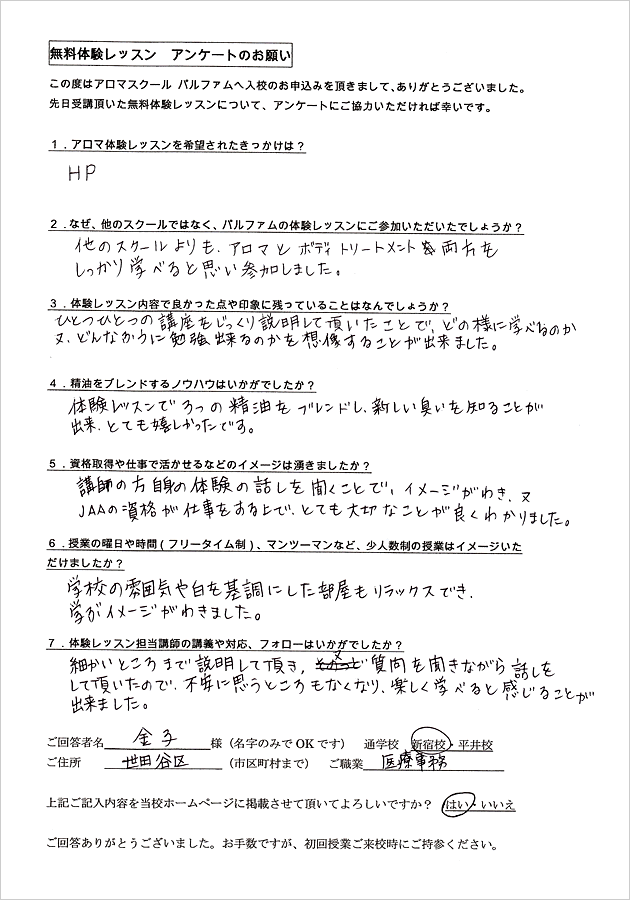 無料体験レッスン　アンケートのお願い
この度はアロマスクール パルファムへ入校のお申込みを頂きまして、ありがとうございました。
先日受講頂いた無料体験レッスンについて、アンケートにご協力いただければ幸いです。
１．アロマ体験レッスンを希望されたきっかけは？
HP
２．なぜ、他のスクールではなく、パルファムの体験レッスンにご参加いただいたでしょうか？
他のスクールよりも、アロマとボディトリートメント両方を
しっかり学べると思い参加しました。
３．体験レッスン内容で良かった点や印象に残っていることはなんでしょうか？
ひとつひとつの講座をじっくり説明して頂いたことで、どの様に学べるのか
又、どんなかうに勉強出来るのかを想像することが出来ました。
４．精油をブレンドするノウハウはいかがでしたか？
体験レッスンで3つの精油をブレンドし、新しい臭いを知ることが
出来、とても嬉しかったです。
５．資格取得や仕事で活かせるなどのイメージは湧きましたか？
講師の方自身の体験の話しを聞くことで、イメージがわき、又
JAAの資格が仕事をする上で、とても大切なことが良くわかりました。
６．授業の曜日や時間（フリータイム制）、マンツーマンなど、少人数制の授業はイメージいた
だけましたか？
学校の雰囲気や白を基調にした部屋もリラックスでき、
学ぶイメージがわきました。
７．体験レッスン担当講師の講義や対応、フォローはいかがでしたか？
細かいところまで説明して頂き、又質問を聞きながら話しを
して頂いたので、不安に思うところもなくなり、楽しく学べると感じることが
出来ました。
ご回答者名 金子 様（名字のみでOKです） 通学校 新宿校・平井校
ご住所 世田谷区 （市区町村まで） ご職業 医療事務
上記ご記入内容を当校ホームページに掲載させて頂いてよろしいですか？ はい・いいえ
ご回答ありがとうございました。お手数ですが、初回授業ご来校時にご持参ください。